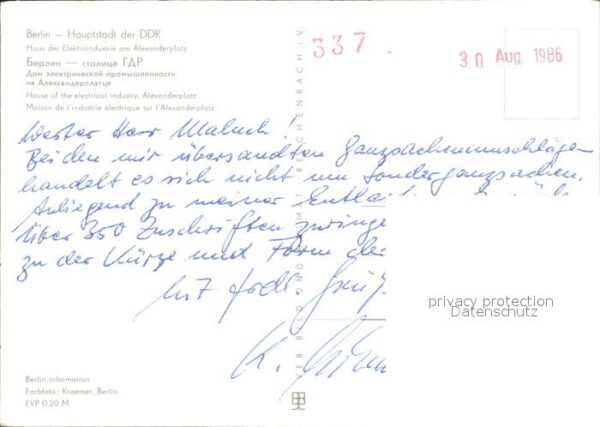 Berlin – Hauptstadt der DDR
Haus der Elektroindustrie am Alexanderplatz
Берлин — столица ГДР
Дом электрической промышленности
на Александерплатце
House of the electrical industry, Alexanderplatz
Maison de l'industrie électrique sur l'Alexanderplatz
337
30 Aug. 1986
Werter Herr Maluch!
Bei den mir übersandten Ganzsachenumschlägen
handelt es sich nicht um Sonderganzsachen.
Anliegend zu meiner
über 350 Zuschriften zwingen
zu der Kürze und Form der
Mit frdl. Gruß
K.
privacy protection
Datenschutz
Berlin-Information
Farbfoto: Kraemer, Berlin
EVP 0,20 M